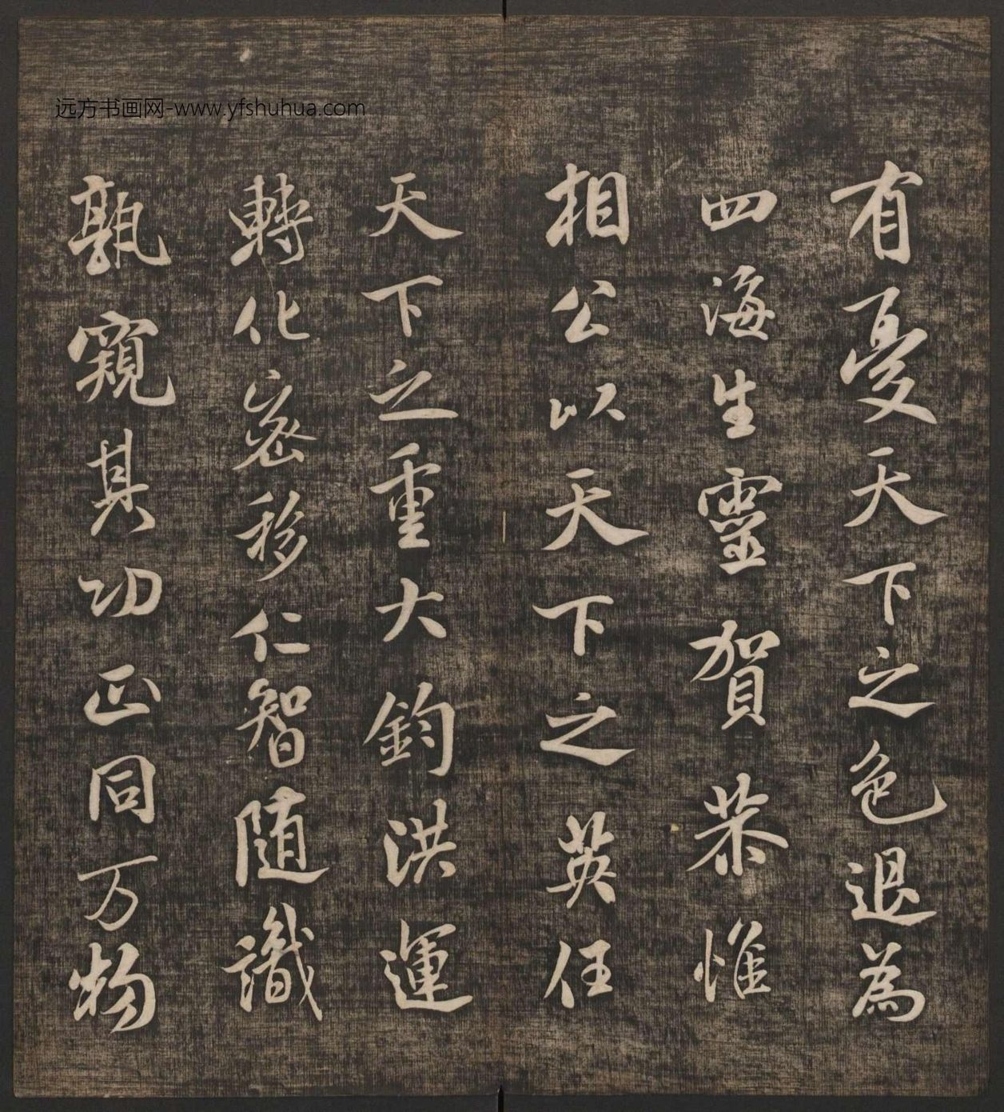 远方书画网-www.yfshuhua.com
有憂天下之色退為
四海生靈賀恭惟
相公以天下之英任
天下之重大鈞洪運
轉化密移仁智随識
孰窺其功正同万物